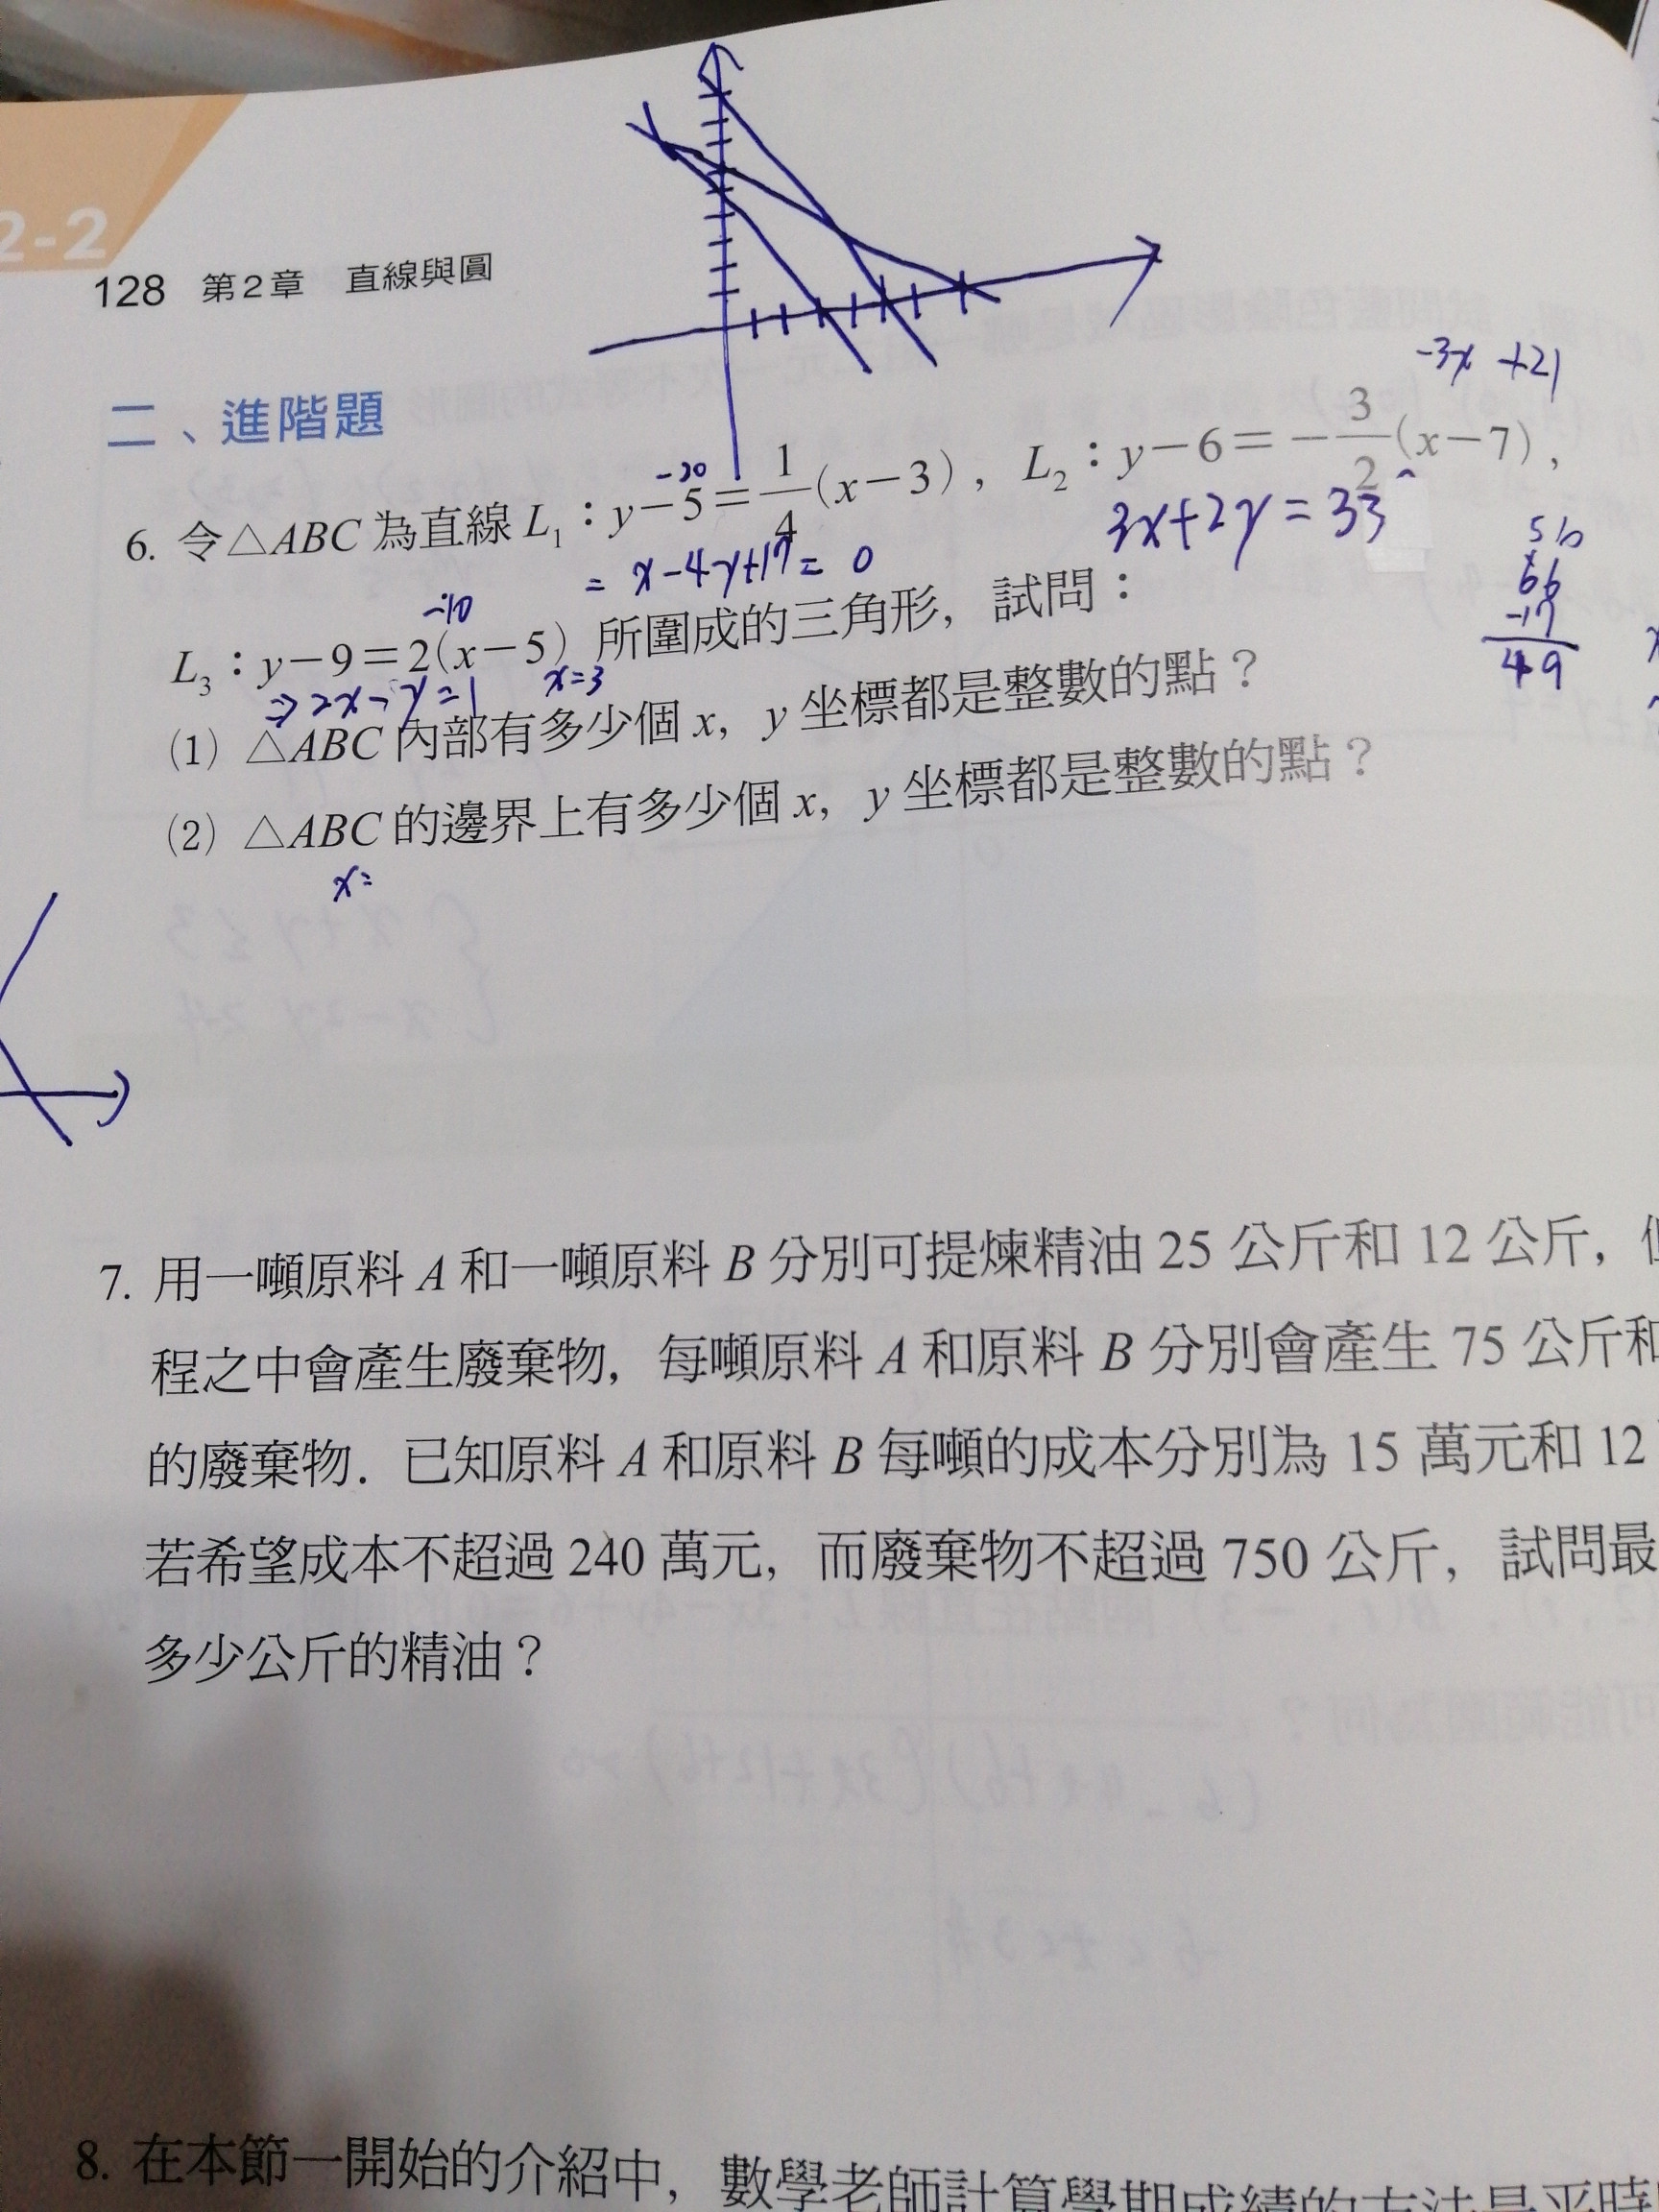 2-2
128 第2章 直線與圓
二、進階題
-3x +21
-20
6. 令△ABC 為直線 L₁：y－5＝1/4(x－3)，L₂：y－6＝－3/2(x－7)，
= x-4y+17= 0
3x+2y=33
66
-17
49
-10
L₃：y－9＝2(x－5) 所圍成的三角形，試問：
⇒2x-y=1
x=3
(1) △ABC 內部有多少個 x，y 坐標都是整數的點？
(2) △ABC 的邊界上有多少個 x，y 坐標都是整數的點？
x=
7. 用一噸原料 A 和一噸原料 B 分別可提煉精油 25 公斤和 12 公斤，
程之中會產生廢棄物，每噸原料 A 和原料 B 分別會產生 75 公斤和
的廢棄物．已知原料 A 和原料 B 每噸的成本分別為 15 萬元和 12
若希望成本不超過 240 萬元，而廢棄物不超過 750 公斤，試問最
多少公斤的精油？
8. 在本節一開始的介紹中，數學老師計算學期成績的方法是平時